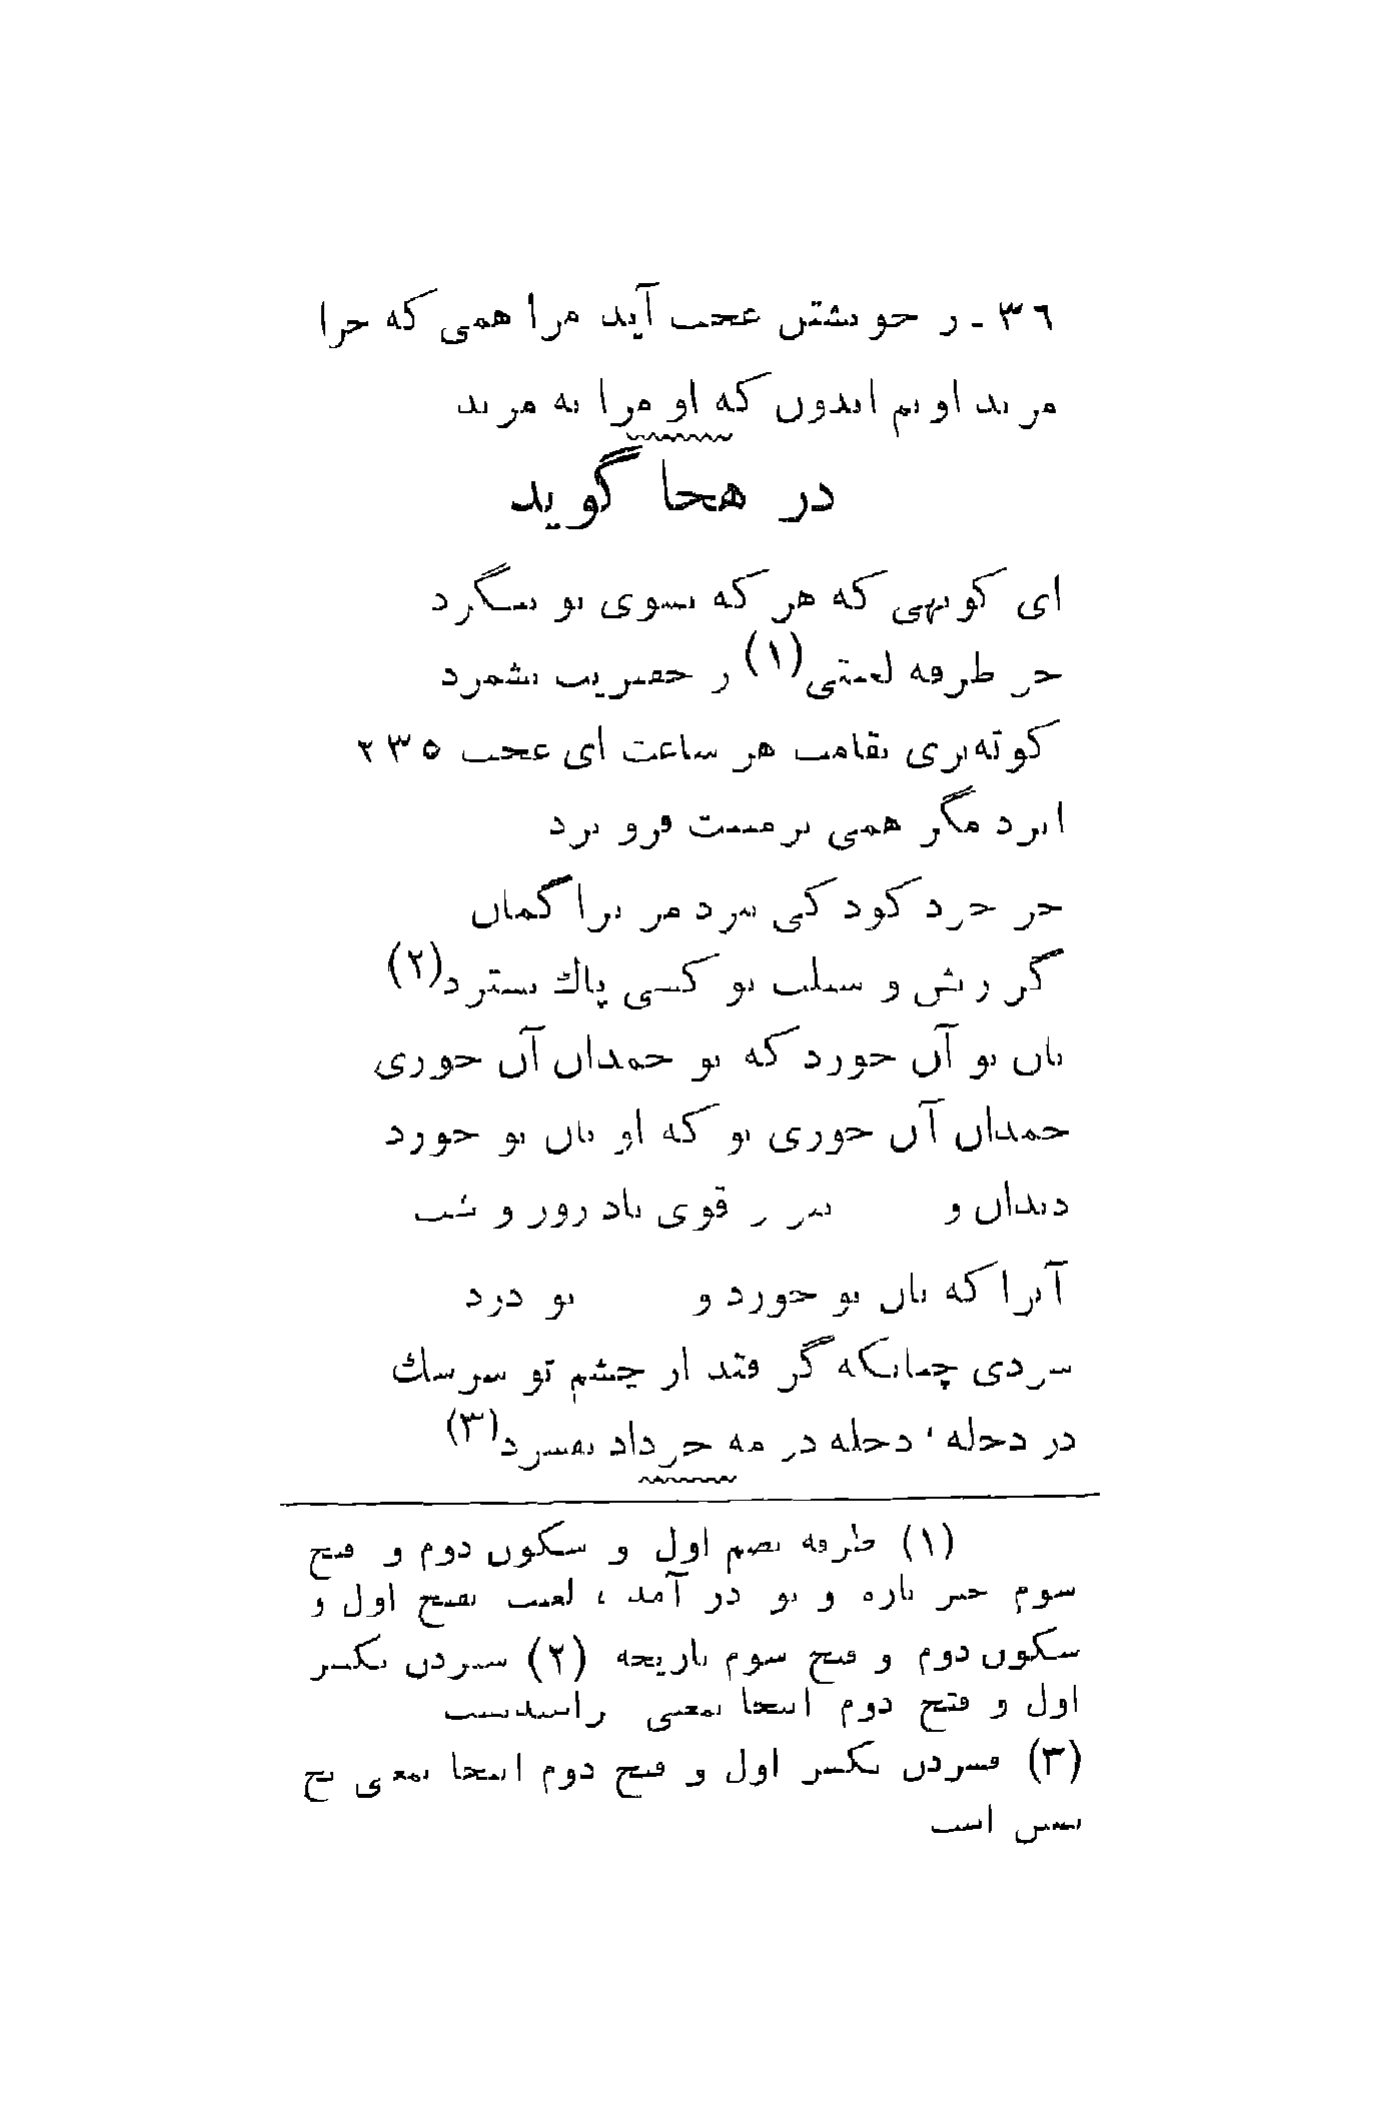 ٣٦ - ز خویشتن عجب آید مرا همی که چرا
مرید اویم ایدون که او مرا نه مرید
در هجا گوید
ای کوتهی که هر که بسوی تو بنگرد
جز طرفه لعبتی (۱) ز حقیریت نشمرد
کوته‌تری بقامت هر ساعت ای عجب ۲۳۵
ایزد مگر همی بزمینت فرو برد
جز خرد کودکی نبرد مر ترا گمان
گر ریش و سبلت تو کسی پاك بسترد (۲)
نان تو آن خورد که تو حمدان آن خوری
حمدان آن خوری تو که او نان تو خورد
دندان و تیز ز قوی باد روز و شب
آنرا که نان تو خورد و تو درد
سردی چنانکه گر فتد از چشم تو سرشك
در دجله ، دجله در مه خرداد بفسرد (۳)
(۱) طرفه بضم اول و سکون دوم و فتح
سوم چیز تازه و نو در آمد ، لعبت بفتح اول و
سکون دوم و فتح سوم بازیچه (۲) ستردن بکسر
اول و فتح دوم اینجا بمعنی تراشیدنست
(۳) فسردن بکسر اول و فتح دوم اینجا بمعنی یخ
بستن است